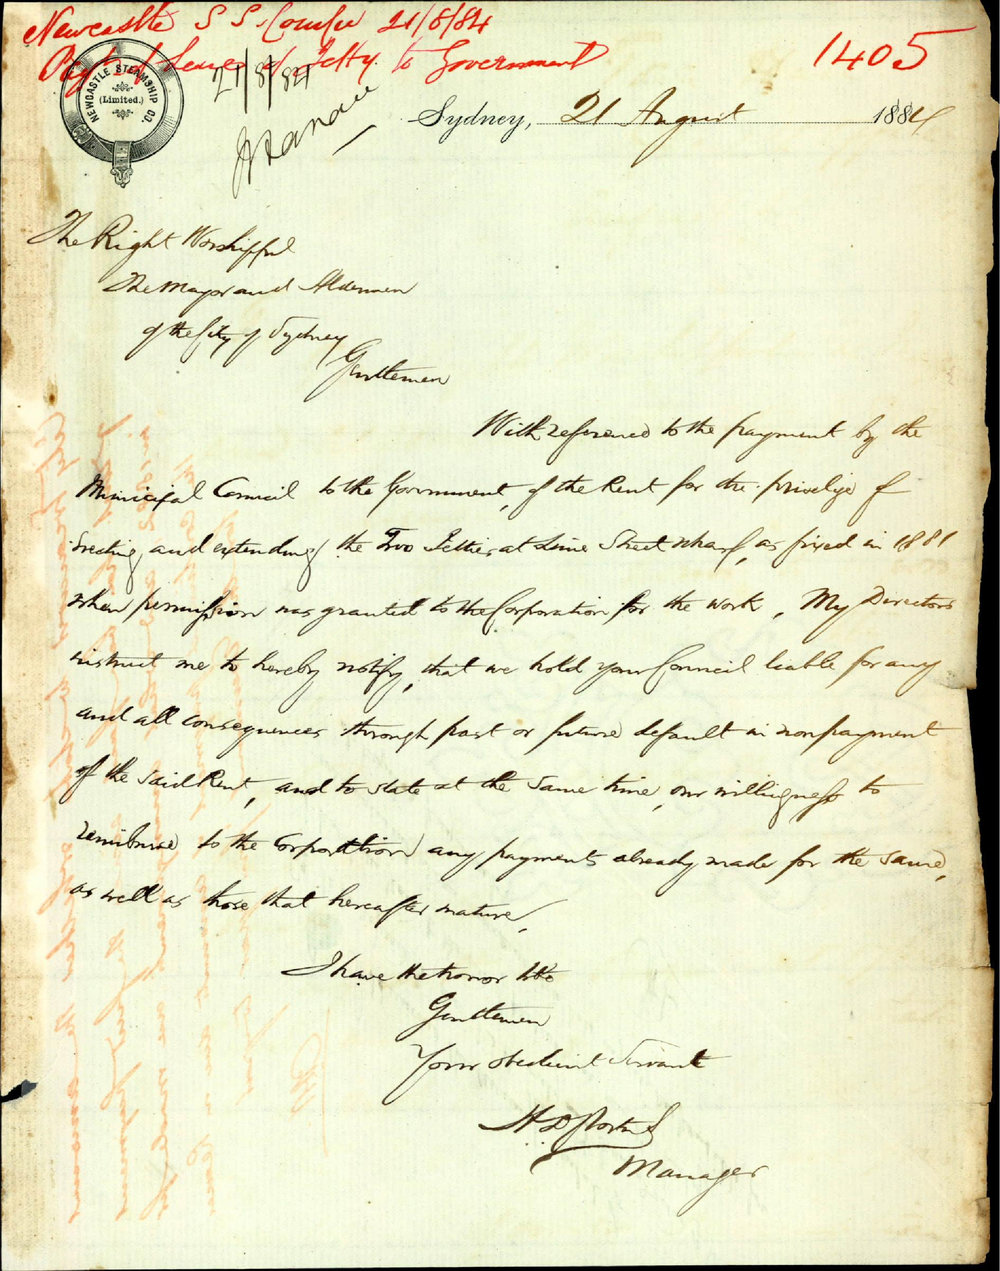 Newcastle S S. Comp 21/8/84
of Leases of Jetty. to Government
1405
NEWCASTLE STEAMSHIP CO.
(Limited.)
21/8/84
Sydney, 21 August 1884
The Right Worshipful
The Mayor and Aldermen
of the City of Sydney
Gentlemen
With reference to the payment by the
Municipal Council to the Government, of the Rent for the privelige of
erecting, and extending the Two Jetties at Lime Street Wharf, as fixed in 1881
when permission was granted to the Corporation for the work, My Directors
instruct me to hereby notify, that we hold your Council liable for any
and all consequences through past or future default in nonpayment
of the said Rent, and to state at the same time, our willingness to
reimburse to the Corporation any payments already made for the same,
as well as those that hereafter mature,
I have the honor to be
Gentlemen
Your obedient Servant
Manager